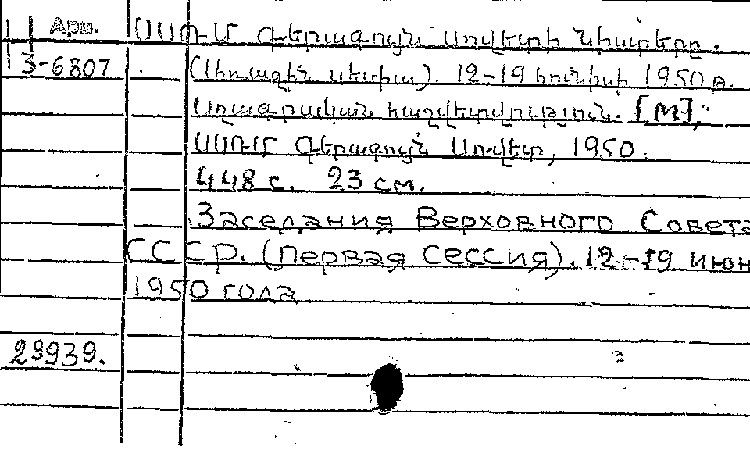 Арм. ՍՍՌՄ Գերագույն Սովետի նիստերը.
13-6807 (Առաջին սեսիա). 12-19 հունիսի 1950 թ.
Սղագրական հաշվետվություն. [М],
ՍՍՌՄ Գերագույն Սովետ, 1950.
448 с. 23 см.
Заседания Верховного Совета
СССР. (первая сессия). 12-19 июн
1950 года
29939.